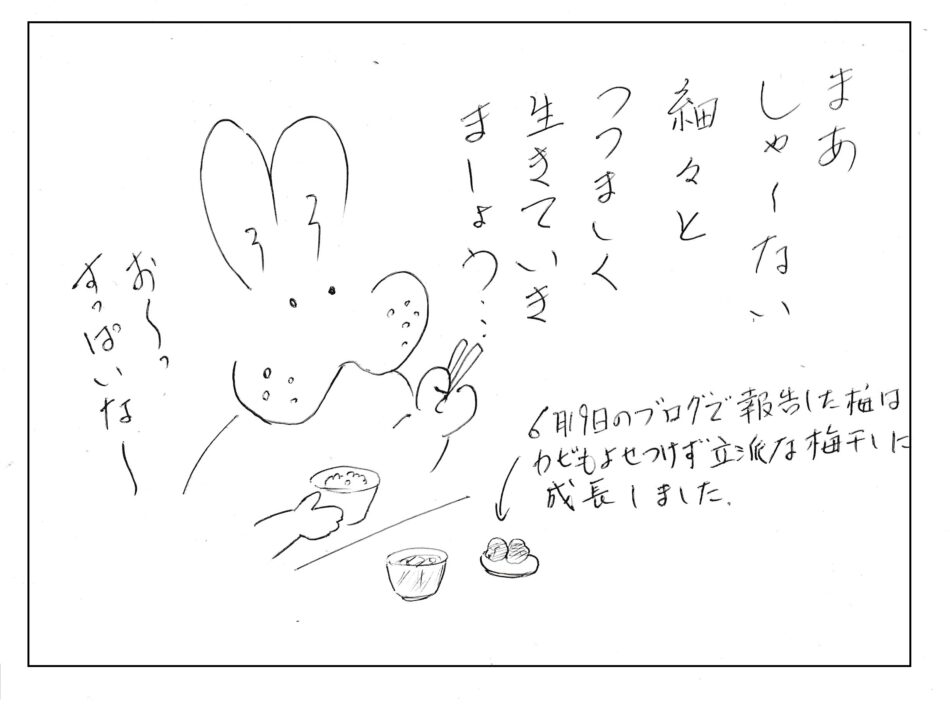 まあ
しゃーない
細々と
つつましく
生きていき
ましょう…
6月19日のブログで報告した梅は
カビもよせつけず立派な梅干しに
成長しました.
お〜っ
すっぱいな〜